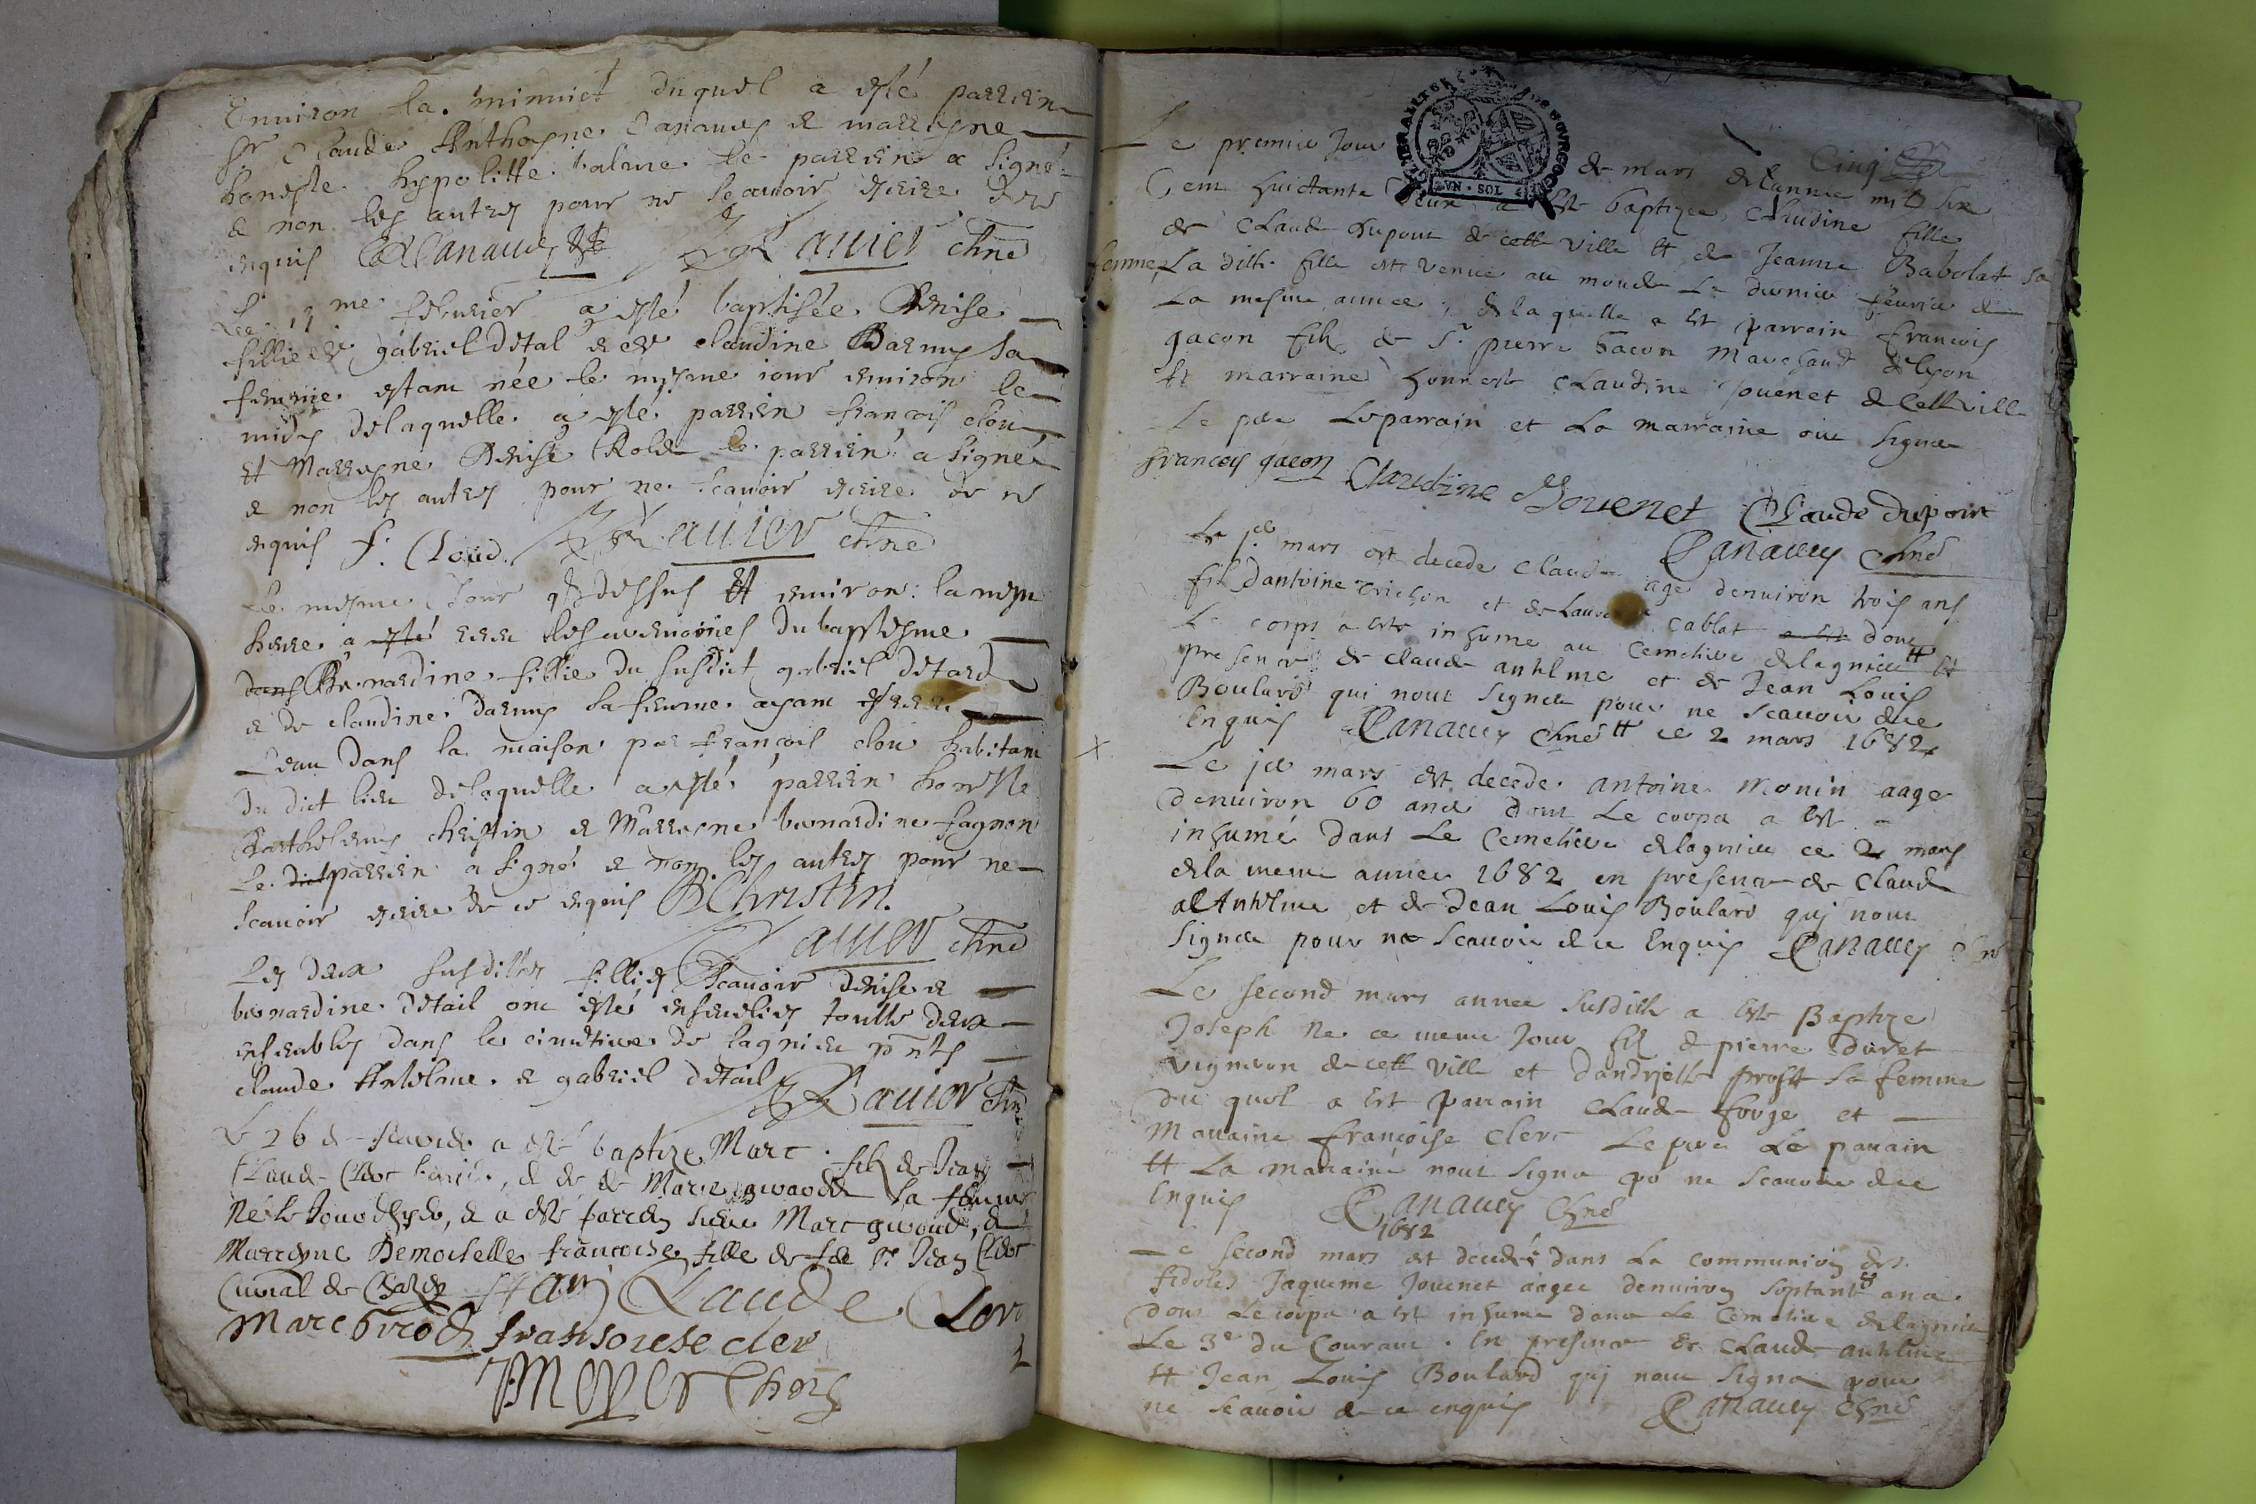 Environ la minuict duquel a esté parrein
Sr Claude Anthoyne Canauey & marreyne
honeste hypolitte balme le parrein a signé
& non les autres pour ne scauoir escrire de ce
enquis Canauey Rauier chne
Le me feburier a esté baptisée Denise
fillie de gabriel détal & de claudine Darmey sa
femme estant née le mesme iour enuiron le
midy delaquelle a esté parrein françois clou
Et Marreyne Denise Rolet le parrein a signé
& non les autres pour ne scauoir escrire de ce
enquis f. Cloud Rauier chne
Le mesme Jour cy dessus Et enuiron la mesme
heure a esté les ceremonies du baptesme
dans Bernardine fillie du susdict gabriel détard
& de claudine Darmey sa femme ayant
Leau dans la maison par françois clou habitant
du dict lieu delaquelle a esté parrein honeste
Barthelemy christin & Marreyne bernardine fagnon
Le dict parrein a signé & non les autres pour ne
scauoir escrire de ce enquis B Christin
Rauier chne
Les deux susdittes fillies scauoir denise &
bernardine détail ont estés enseuelies toutte deux
ensembles dans le cimetiere de lagnieu pnts
claude Anthelme & gabriel détail
Rauier chne
Le 26 de feurier a esté baptize Marc filz de Jean
Claude Clerc & de Marie giraudet sa femme
Né le Jour d'hyer, & a esté parrein sieur Marc giroud, &
Marreyne Demoiselle françoise fille de feu Sr Jean Clerc
Curial de Jean Claude Clerc
Marc Girod fransoiese cler
Moyer Chne
GENERALITE DE BOVRGOGNE
VN · SOL
Cinq
Le premier Jour de mars de lannee mil six
Cent huictante deux a esté baptizee Claudine fille
de Claude dupont de cette Ville Et de Jeanne Babolat sa
femme, La ditte fille est venue au monde Le dernier feurier de
La mesme annee, de la quelle a esté parrain francois
gacon filz de Sr pierre Gacon Marchand de lyon
Et marraine honneste Claudine Jouenet de Cette ville
Le pere Leparrain et La marraine ont signée
francois gacon Claudine Jouenet Claude dupont
Canauey chne
Le 1er mars est decede Claude age denuiron trois ans
filz dantoine trichon et de cablat dont
Le corps a esté inhume au Cemetiere de lagnieu Et
presence de claude anthelme et de Jean Louis
Boulard qui nont signee pour ne scauoir de ce
Enquis Canauey chne Et ce 2 mars 1682
Le jer mars est decede antoine monin aage
denuiron 60 ans dont Le corps a esté
inhumé dans Le Cemetiere de lagnieu ce 2 mars
de la meme annee 1682 en presence de Claude
Anthelme et de Jean Louis Boulard quj nont
signee pour ne scauoir de ce Enquis Canauey chne
Le second mars annee susditte a esté Baptize
Joseph Ne ce meme Jour filz de pierre duret
vigneron de cette Ville et dandriette prost sa femme
du quel a esté parrain Claude forge et
Maraine françoise Clerc Le pere Le parain
Et La maraine nont signe po ne scauoir de ce
Enquis Canauey chne
1682
Le second mars est decedée dans La communion des
fideles Jaqueme Jouenet aagee denuiron soptante ans
dont Lecorps a esté inhume dans Le Cemetiere de lagnieu
Le 3e du Courant. En presence de Claude anthelme
Et Jean Louis Boulard quj nont signe pour
ne scauoir de ce enquis Canauey chne